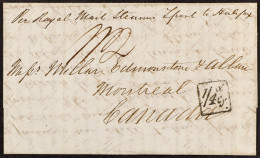 Per Royal Mail Steamer L'pool to Halifax
Messrs Millar Edmonstone & Allan
Montreal
Canada